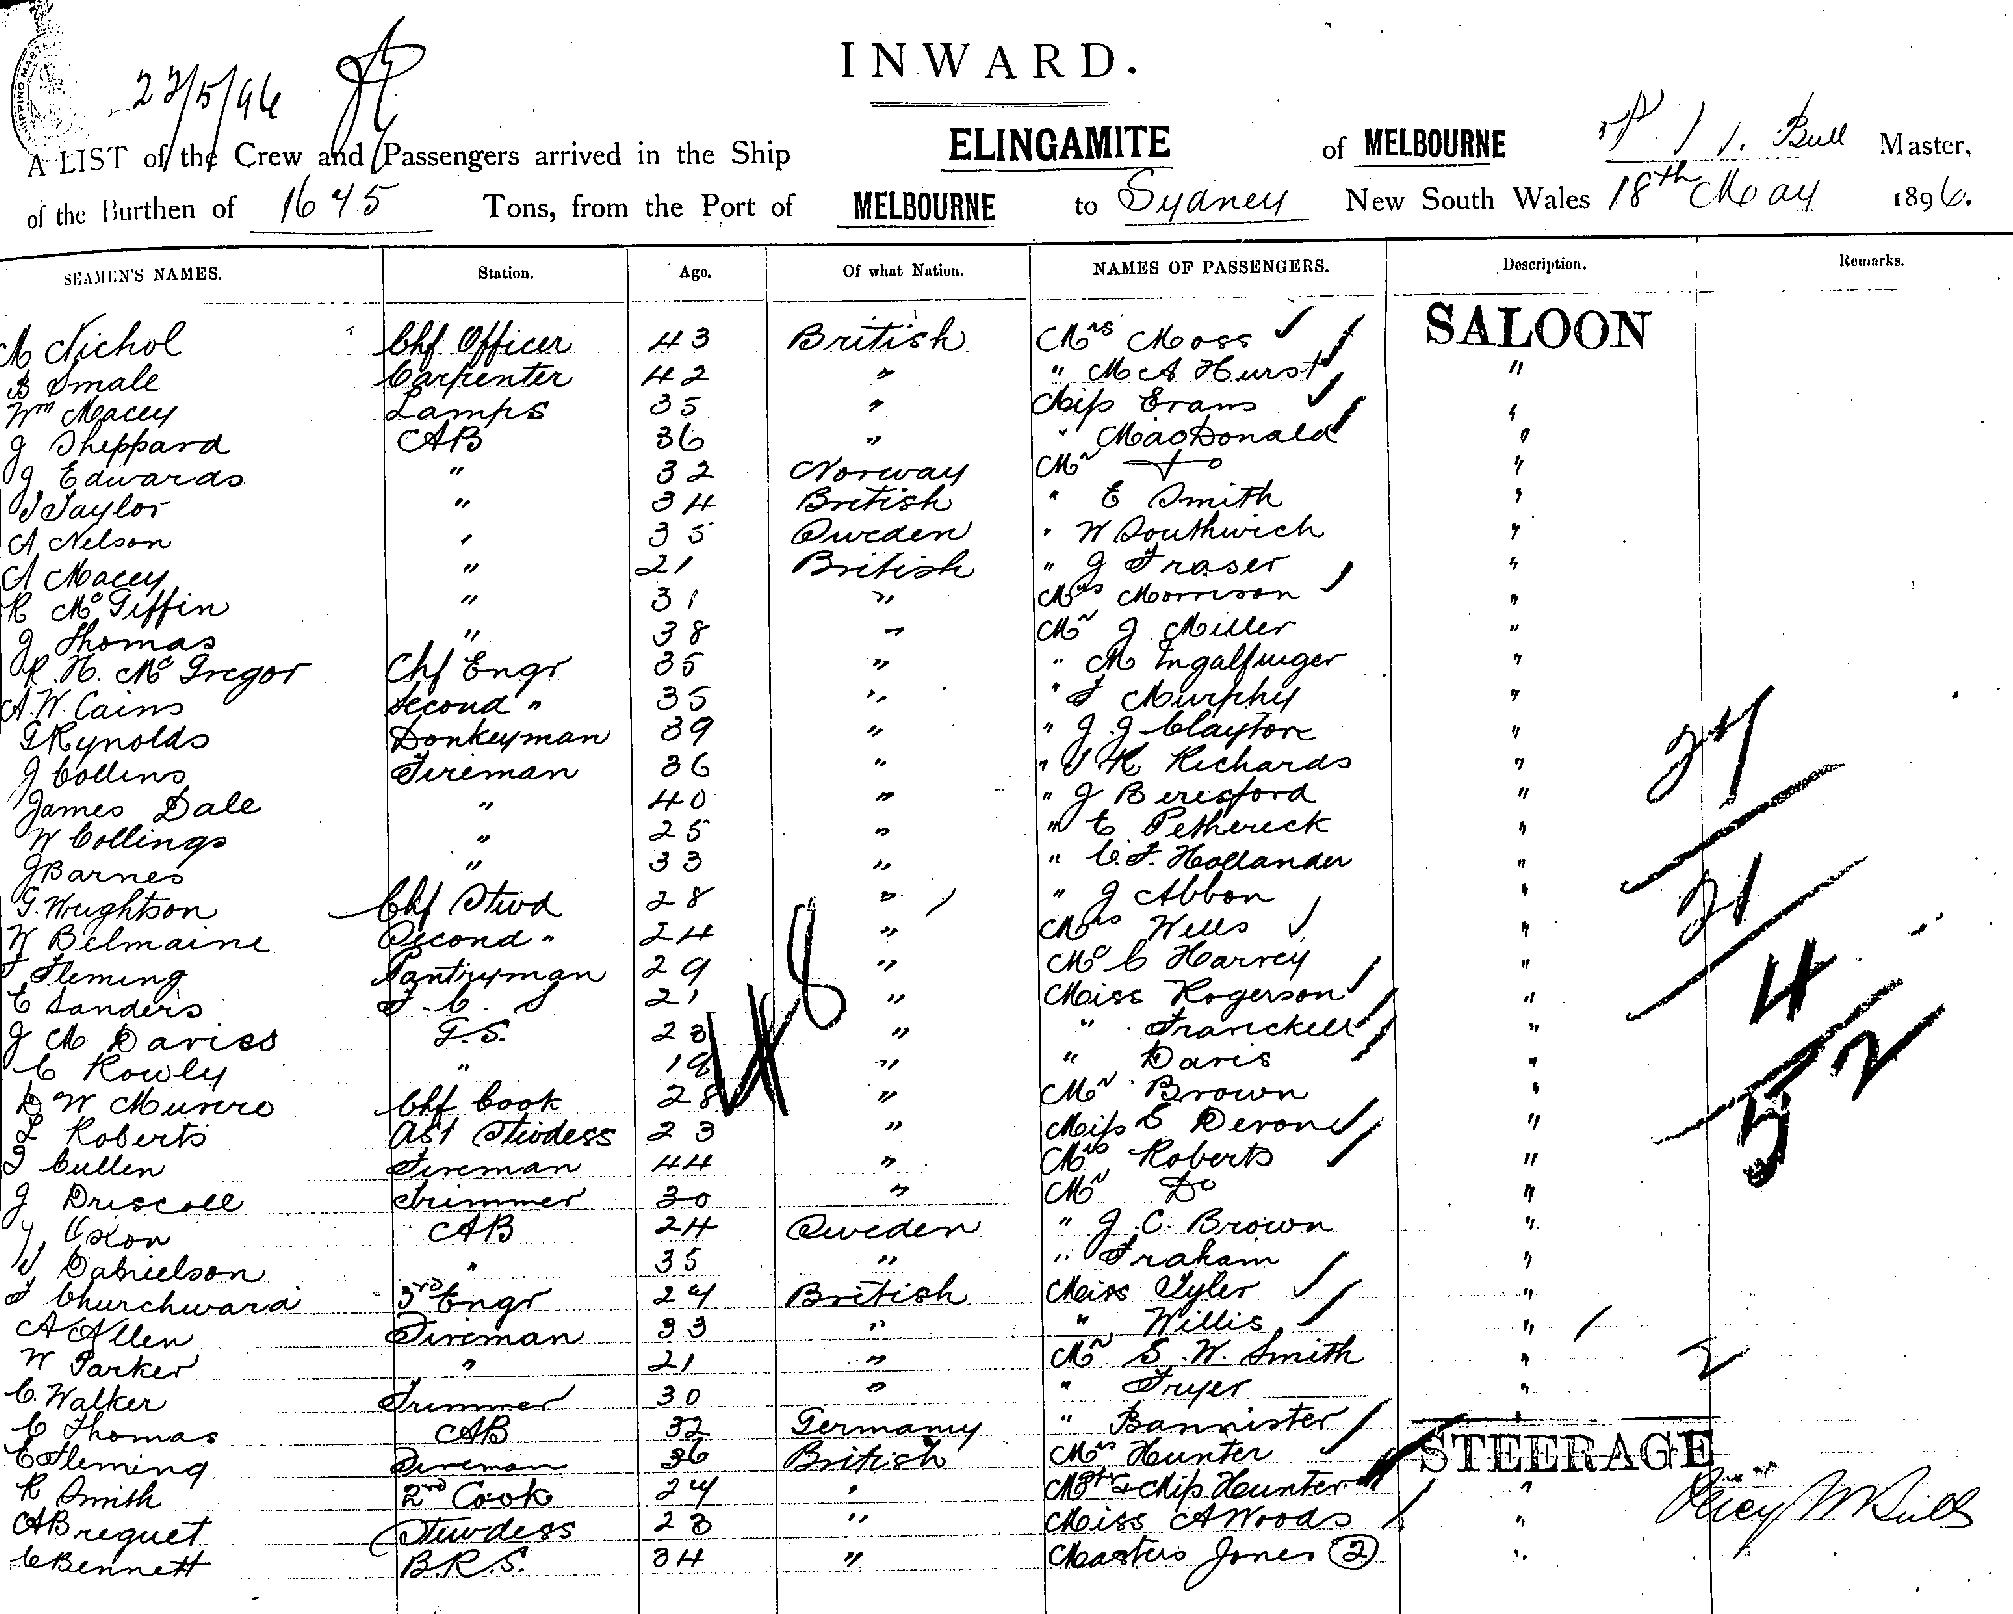 INWARD.
23/5/96
A LIST of the Crew and Passengers arrived in the Ship ELINGAMITE of MELBOURNE Bull Master,
of the Burthen of 1645 Tons, from the Port of MELBOURNE to Sydney New South Wales 18th May 1896.
SEAMEN'S NAMES. Station. Age. Of what Nation. NAMES OF PASSENGERS. Description. Remarks.
M Nichol Chf Officer 43 British Mrs Moss SALOON
B Smale Carpenter 42 " " M A Hurst "
Wm Macey Lamps 35 " Miss Evans "
J Sheppard AB 36 " " MacDonald "
J Edwards " 32 Norway Mr Do "
T Taylor " 34 British " E Smith "
A Nelson " 35 Sweden " W Southwich "
A Macey " 21 British " J Fraser "
R McGiffin " 31 " Mrs Morrison "
J Thomas " 38 " Mr J Miller "
R. H. McGregor Chf Engr 35 " " M Ingalfinger "
A. W. Cains Second " 35 " " T Murphy "
G Rynolds Donkeyman 39 " " J. J Claytore "
J Collins Fireman 36 " " R Richards " 27
James Dale " 40 " " J Beresford "
W Collings " 25 " " E Pethereck "
J Barnes " 33 " " C. F. Hollander "
G. Wrightson Chf Stwd 28 " " J Abbon " 21
W Belmaine Second " 24 " Mrs Wells "
T Fleming Pantryman 29 " Mr C Harvey "
E Sanders F. C. S 21 48 " Miss Rogerson " 4
J M Daviss G.S. 23 " " Franckell "
C Rowly " 18 " " Davis "
D W Munro Chf Cook 28 " Mr Brown " 52
L Roberts Ast Stwdess 23 " Miss E Devon "
T Cullen Fireman 44 " Mrs Roberts "
J Driscoll Trimmer 30 " Mr Do "
J Oxon AB 24 Sweden " J. C. Brown "
Danielson " 35 " " Fraham "
F Churchward 3rd Engr 24 British Miss Tyler "
A Allen Fireman 33 " " Willis "
W Parker " 21 " Mr S. W. Smith " 2
C. Walker Trimmer 30 " " Fryer "
C Thomas AB 32 Germany " Bannister
E Fleming Fireman 36 British Mrs Hunter STEERAGE
R Smith 2nd Cook 24 " Mstr & Miss Hunter "
A Breguet Stwdess 28 " Miss A Woods " Percy W Bull
C Bennett B.R.S. 34 " Masters Jones (2) "